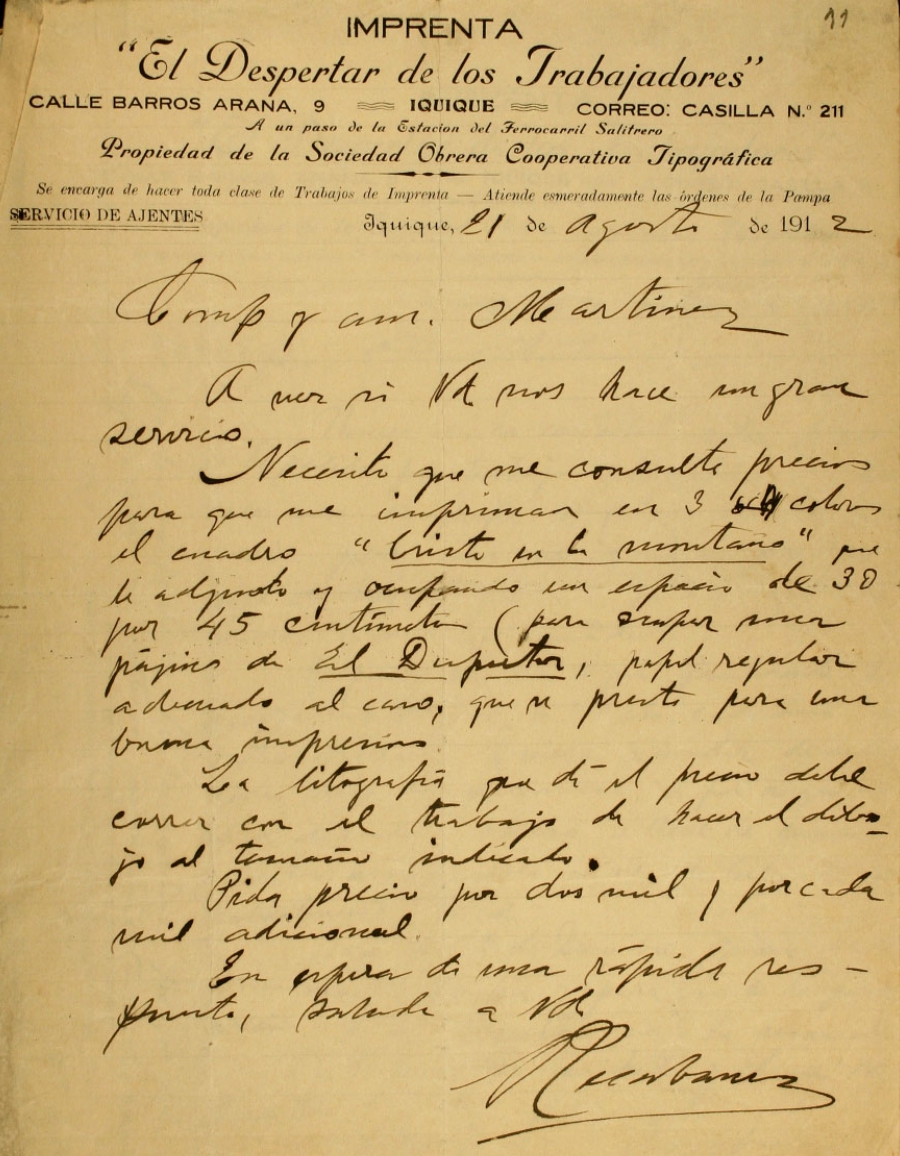 11
IMPRENTA
"El Despertar de los Trabajadores"
CALLE BARROS ARANA, 9 IQUIQUE CORREO: CASILLA N.º 211
A un paso de la Estacion del Ferrocarril Salitrero
Propiedad de la Sociedad Obrera Cooperativa Tipográfica
Se encarga de hacer toda clase de Trabajos de Imprenta — Atiende esmeradamente las órdenes de la Pampa
SERVICIO DE AJENTES
Iquique, 21 de Agosto de 1912
Comp y am. Martinez
A ver si Vd nos hace un gran
servicio.
Necesito que me consulte precios
para que me impriman en 3 colores
el cuadro "Cristo en la montaña" que
le adjunto y ocupando un espacio de 30
por 45 centímetros (para ocupar una
página de El Despertar, papel regular
adecuado al caso, que se preste para una
buena impresion.
La litografía que dé el precio debe
correr con el trabajo de hacer el dibu-
jo al tamaño indicado.
Pida precio por dos mil y por cada
mil adicional.
En espera de una rápida res-
puesta, saluda a Vd
Recabarren